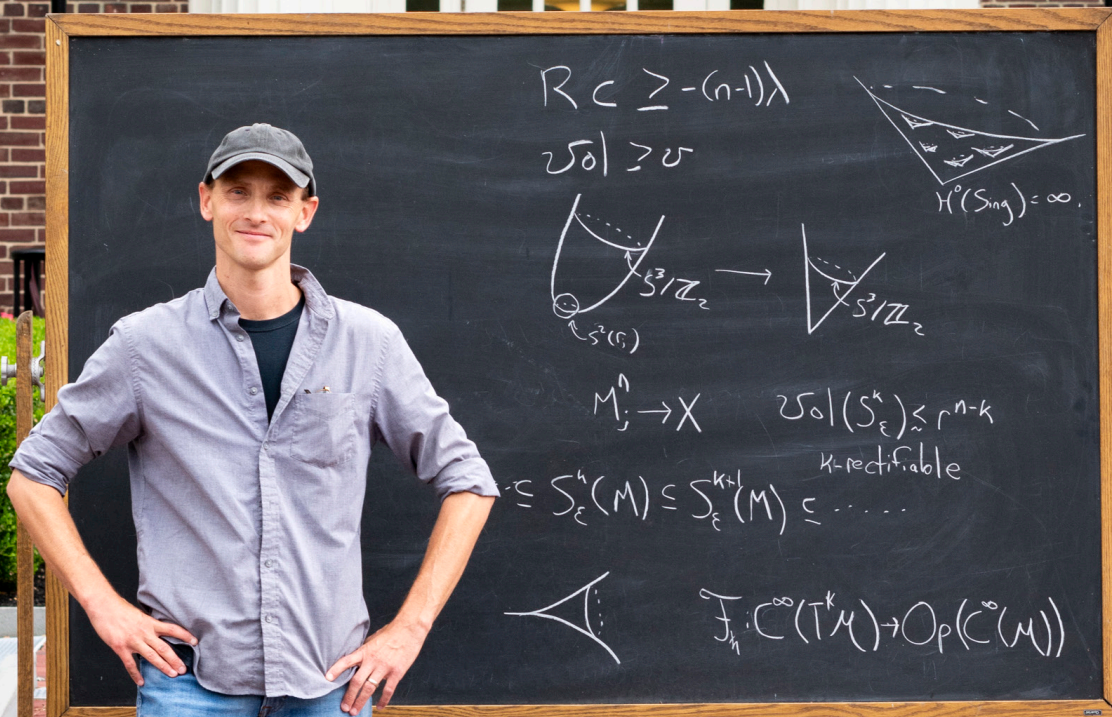 Rc ≥ -(n-1)λ
vol ≥ v
H⁰(Sing) = ∞.
S³/ℤ₂ → S³/ℤ₂
S²(rⱼ)
Mⱼⁿ → X
Vol(Sᵏ_ε) ≲ rⁿ⁻ᵏ
k-rectifiable
⊆ Sᵏ_ε(M) ⊆ Sᵏ⁺¹_ε(M) ⊆ ·····
ℱ_ℏ : C^∞(T*M) → Op(C^∞(M))